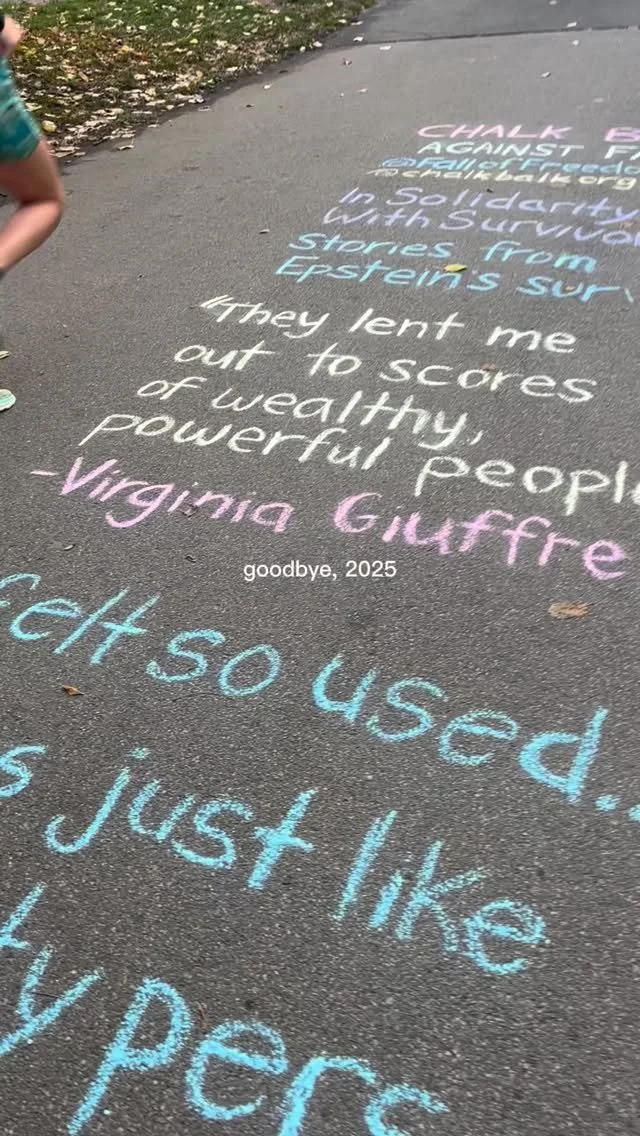 CHALK B
AGAINST F
@FallofFreedo
@chalkbalkorg
In Solidarity
With Survivo
Stories from
Epstein's sur
"They lent me
out to scores
of wealthy,
powerful peopl
-Virginia Giuffre
goodbye, 2025
felt so used...
s just like
ty pers